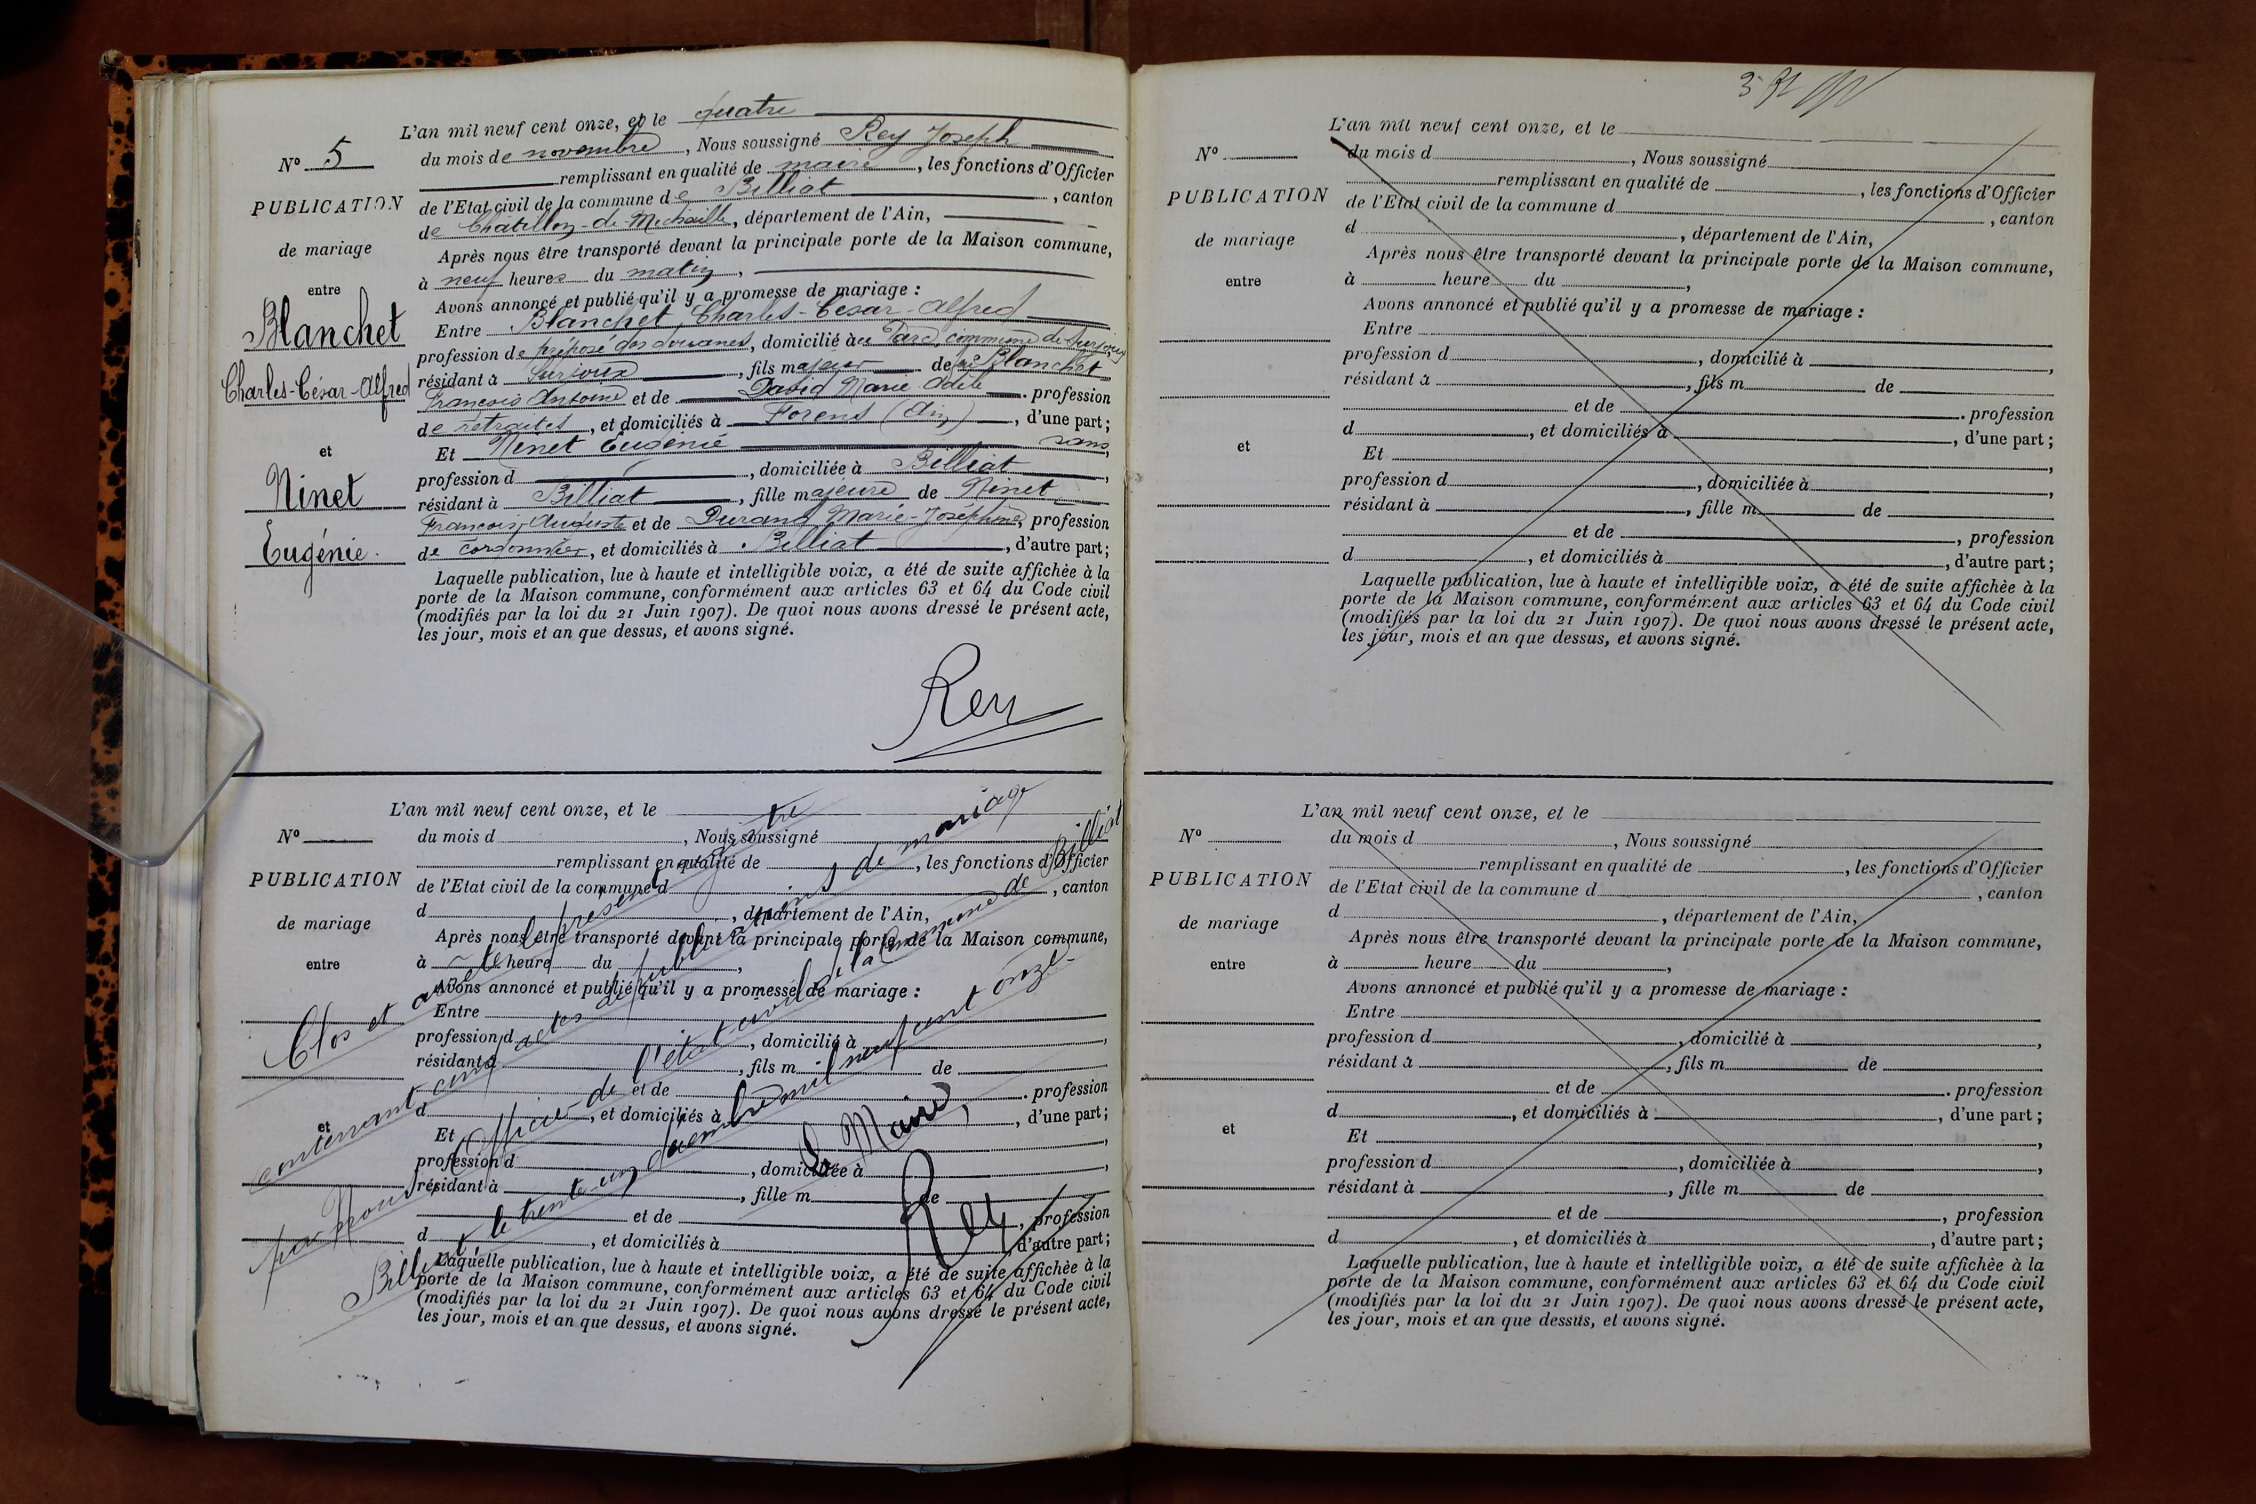 L'an mil neuf cent onze, et le quatre
N° 5 du mois de novembre, Nous soussigné Rey Joseph
remplissant en qualité de maire, les fonctions d'Officier
PUBLICATION de l'Etat civil de la commune de Billiat, canton
de Chatillon-de-Michaille, département de l'Ain,
de mariage Après nous être transporté devant la principale porte de la Maison commune,
à neuf heures du matin,
entre Avons annoncé et publié qu'il y a promesse de mariage :
Blanchet Entre Blanchet, Charles-César-Alfred
profession de préposé des douanes, domicilié à Parc commune de Surjoux
Charles-César-Alfred résidant à Surjoux, fils majeur de Blanchet
François Antoine et de David Marie Adèle. profession
de retraités, et domiciliés à Forens (Ain), d'une part;
et Et Ninet Eugénie sans
profession d, domiciliée à Billiat,
Ninet résidant à Billiat, fille majeure de Ninet
François, Auguste et de Durand Marie-Joséphine, profession
Eugénie. de cordonnier, et domiciliés à Billiat, d'autre part;
Laquelle publication, lue à haute et intelligible voix, a été de suite affichèe à la
porte de la Maison commune, conformément aux articles 63 et 64 du Code civil
(modifiés par la loi du 21 Juin 1907). De quoi nous avons dressé le présent acte,
les jour, mois et an que dessus, et avons signé.
Rey
L'an mil neuf cent onze, et le
N° du mois d, Nous soussigné
remplissant en qualité de, les fonctions d'Officier
PUBLICATION de l'Etat civil de la commune d, canton
d, département de l'Ain,
de mariage Après nous être transporté devant la principale porte de la Maison commune,
entre à heure du,
Avons annoncé et publié qu'il y a promesse de mariage :
Entre
profession d, domicilié à,
résidant à, fils m de
et de. profession
d, et domiciliés à, d'une part;
et Et,
profession d, domiciliée à,
résidant à, fille m de
et de, profession
d, et domiciliés à, d'autre part;
Laquelle publication, lue à haute et intelligible voix, a été de suite affichèe à la
porte de la Maison commune, conformément aux articles 63 et 64 du Code civil
(modifiés par la loi du 21 Juin 1907). De quoi nous avons dressé le présent acte,
les jour, mois et an que dessus, et avons signé.
Clos et arrêté le présent registre
contenant cinq actes de publications de mariage
par Nous, Officier de l'état civil de la Commune de Billiat
Billiat, le trente-un décembre mil neuf cent onze.
Le Maire,
Rey
L'an mil neuf cent onze, et le
N° du mois d, Nous soussigné
remplissant en qualité de, les fonctions d'Officier
PUBLICATION de l'Etat civil de la commune d, canton
d, département de l'Ain,
de mariage Après nous être transporté devant la principale porte de la Maison commune,
entre à heure du,
Avons annoncé et publié qu'il y a promesse de mariage :
Entre
profession d, domicilié à,
résidant à, fils m de
et de. profession
d, et domiciliés à, d'une part;
et Et,
profession d, domiciliée à,
résidant à, fille m de
et de, profession
d, et domiciliés à, d'autre part;
Laquelle publication, lue à haute et intelligible voix, a été de suite affichèe à la
porte de la Maison commune, conformément aux articles 63 et 64 du Code civil
(modifiés par la loi du 21 Juin 1907). De quoi nous avons dressé le présent acte,
les jour, mois et an que dessus, et avons signé.
L'an mil neuf cent onze, et le
N° du mois d, Nous soussigné
remplissant en qualité de, les fonctions d'Officier
PUBLICATION de l'Etat civil de la commune d, canton
d, département de l'Ain,
de mariage Après nous être transporté devant la principale porte de la Maison commune,
entre à heure du,
Avons annoncé et publié qu'il y a promesse de mariage :
Entre
profession d, domicilié à,
résidant à, fils m de
et de. profession
d, et domiciliés à, d'une part;
et Et,
profession d, domiciliée à,
résidant à, fille m de
et de, profession
d, et domiciliés à, d'autre part;
Laquelle publication, lue à haute et intelligible voix, a été de suite affichèe à la
porte de la Maison commune, conformément aux articles 63 et 64 du Code civil
(modifiés par la loi du 21 Juin 1907). De quoi nous avons dressé le présent acte,
les jour, mois et an que dessus, et avons signé.